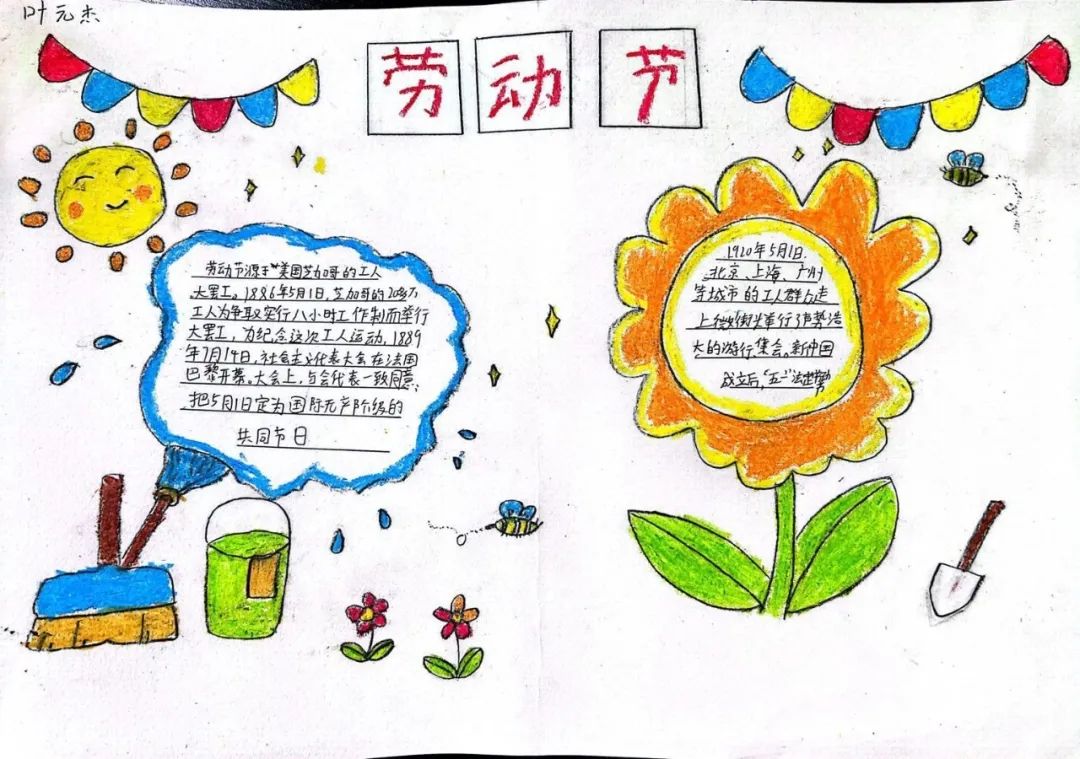 叶元杰
劳动节
劳动节源于"美国芝加哥的工人
大罢工。1886年5月1日,芝加哥的20多万
工人为争取实行八小时工作制而举行
大罢工,为纪念这次工人运动,1889
年7月14日,社会主义代表大会在法国
巴黎开幕。大会上,与会代表一致同意,
把5月1日定为国际无产阶级的
共同节日
1920年5月1日.
北京、上海、广州
等城市的工人群众走
上街举行声势浩
大的游行集会。新中国
成立后,"五一"法定劳动